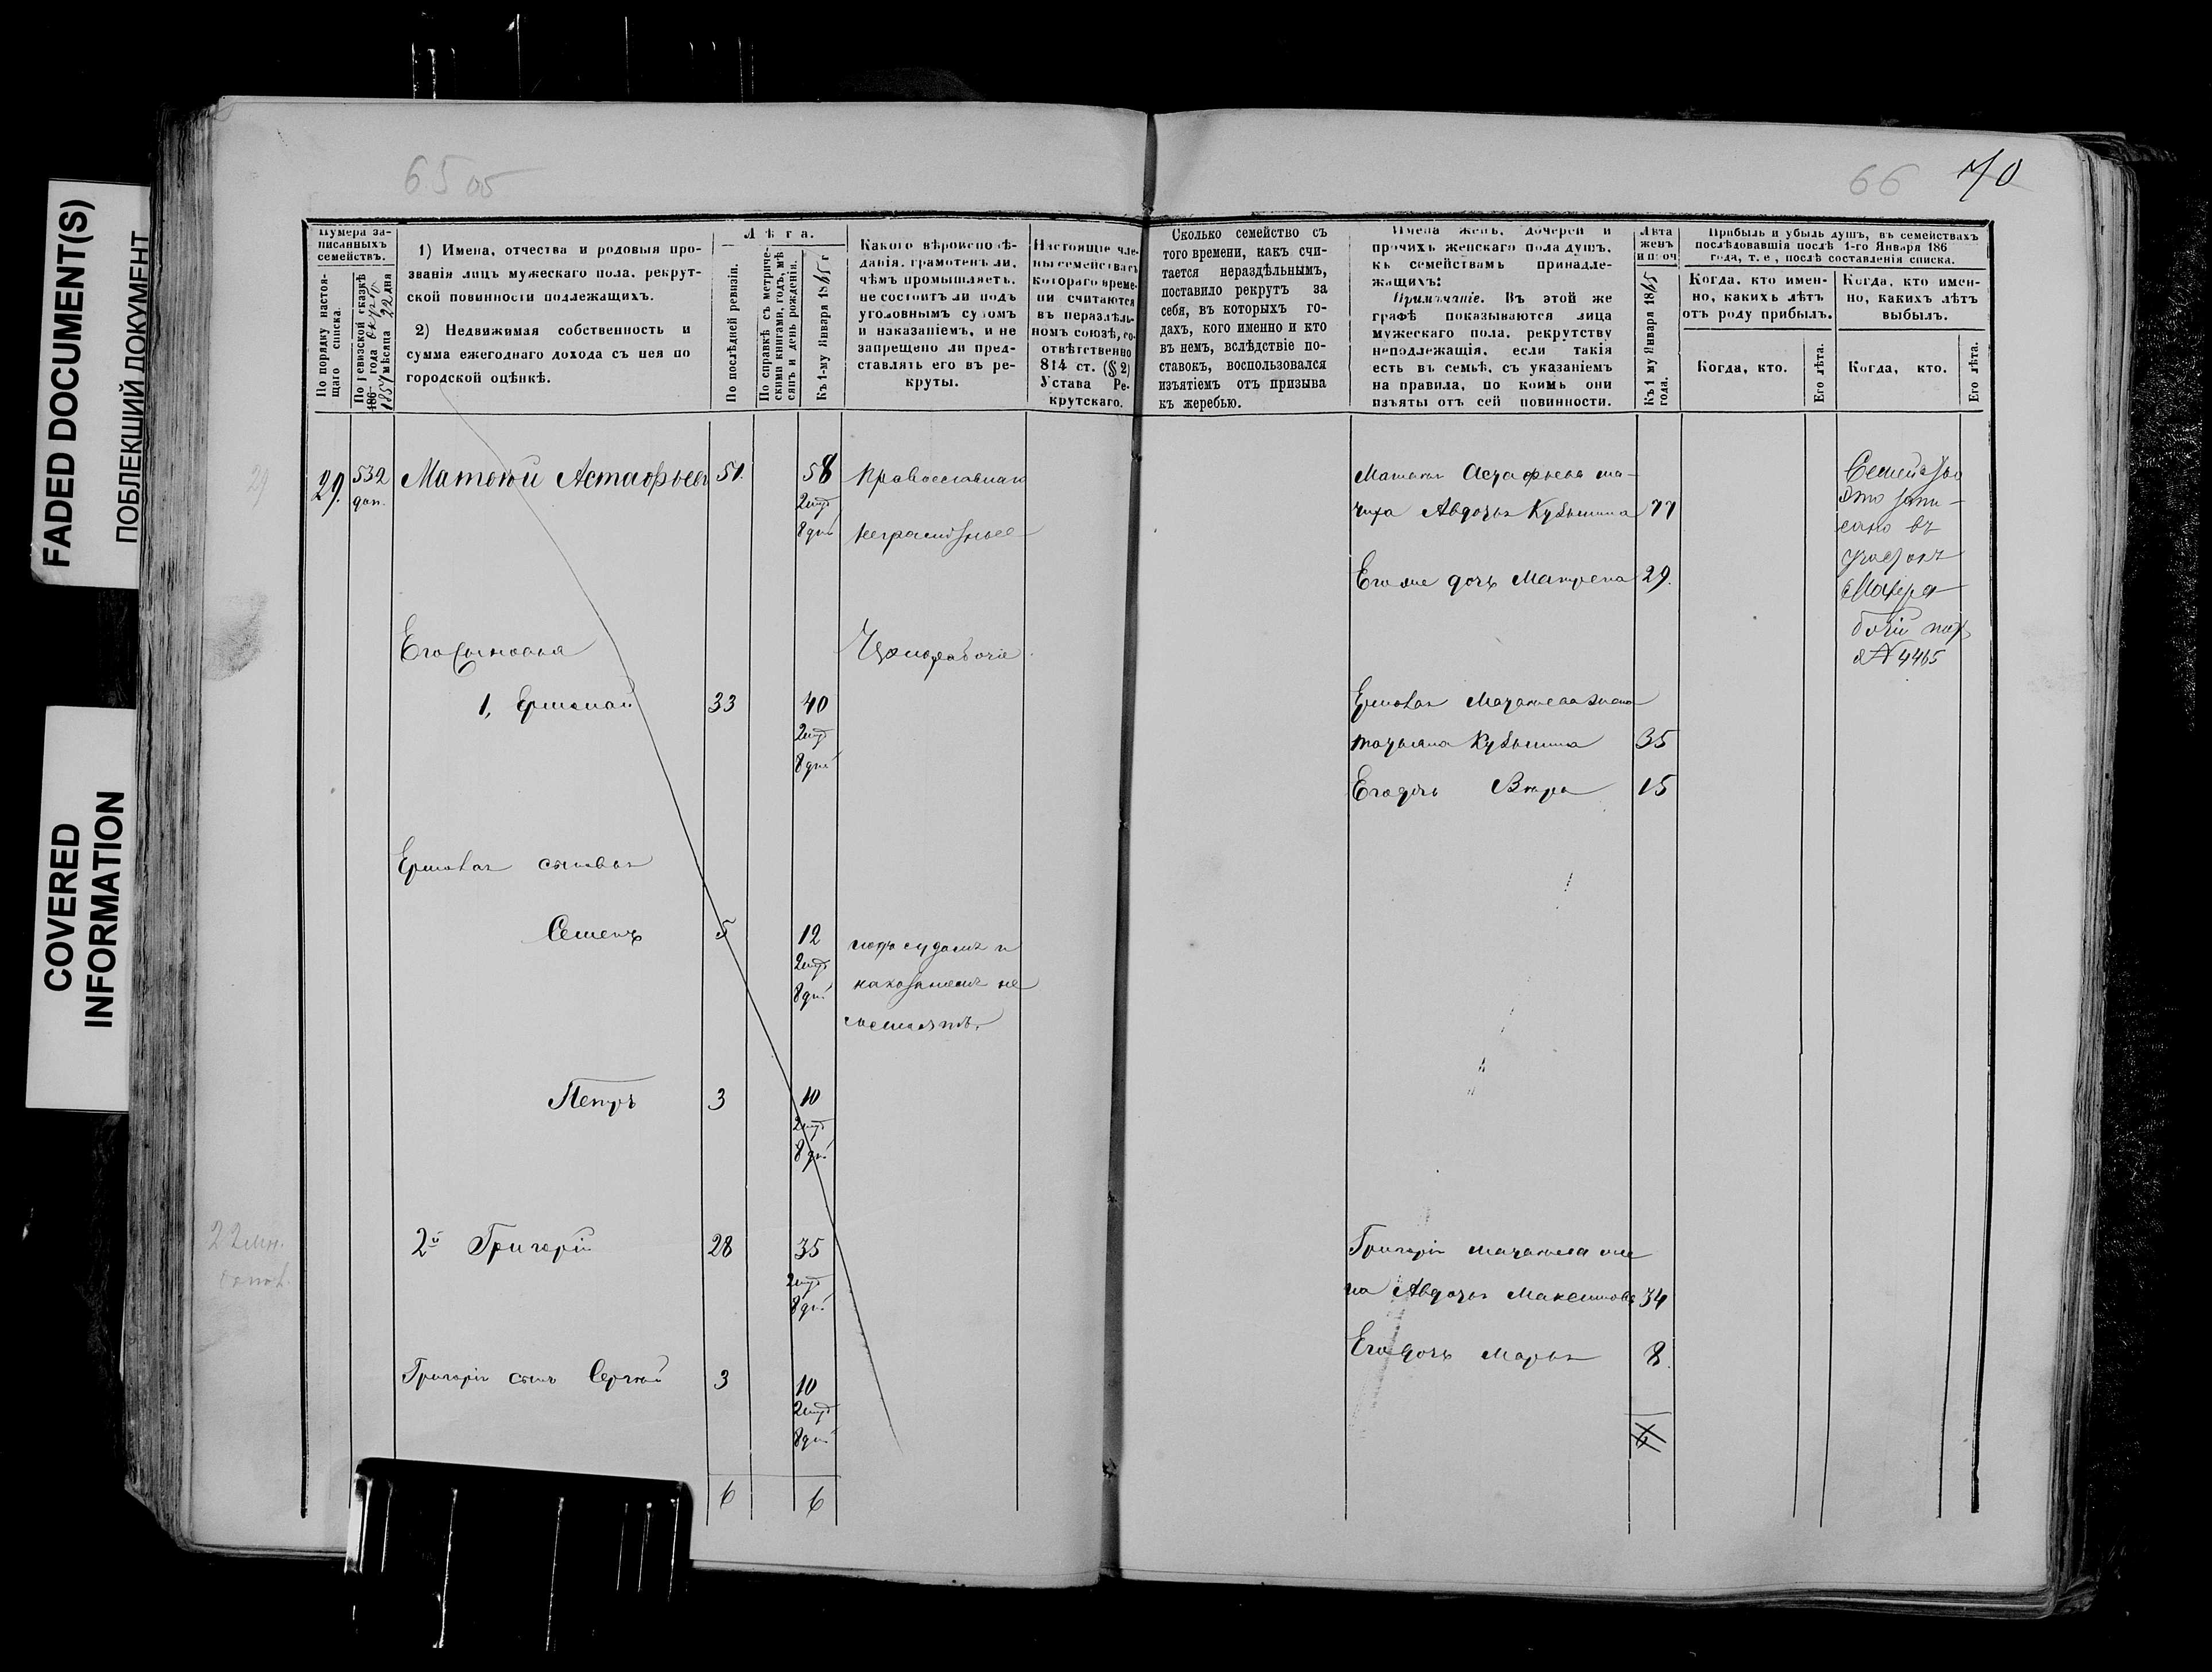 FADED DOCUMENT(S)
ПОБЛЕКШИЙ ДОКУМЕНТ
COVERED
INFORMATION
65 об
66 70
Нумера за-
писанныхъ
семействъ.
По порядку настоя-
щаго списка.
По ревизской сказкѣ
186 года
1857 мѣсяца 22 дня
1) Имена, отчества и родовыя про-
званія лицъ мужескаго пола, рекрут-
ской повинности подлежащихъ.
2) Недвижимая собственность и
сумма ежегоднаго дохода съ нея по
городской оцѣнкѣ.
Лѣта.
По послѣдней ревизіи.
По справкѣ съ метриче-
скими книгами, годъ, мѣ-
сяцъ и день рожденія.
Къ 1-му Января 1865 г
Какого вѣроисповѣ-
данія, грамотенъ ли,
чѣмъ промышляетъ,
не состоитъ ли подъ
уголовнымъ судомъ
и наказаніемъ, и не
запрещено ли пред-
ставлять его въ ре-
круты.
Настоящіе чле-
ны семейства съ
котораго време-
ни считаются
въ нераздѣль-
номъ союзѣ, со-
отвѣтственно
814 ст. (§ 2)
Устава Ре-
крутскаго.
Сколько семейство съ
того времени, какъ счи-
тается нераздѣльнымъ,
поставило рекрутъ за
себя, въ которыхъ го-
дахъ, кого именно и кто
въ немъ, вслѣдствіе по-
ставокъ, воспользовался
изъятіемъ отъ призыва
къ жеребью.
Имена женъ, дочерей и
прочихъ женскаго пола душъ,
къ семействамъ принадле-
жащихъ:
Примѣчаніе. Въ этой же
графѣ показываются лица
мужескаго пола, рекрутству
неподлежащія, если такія
есть въ семьѣ, съ указаніемъ
на правила, по коимъ они
изъяты отъ сей повинности.
Лѣта
женъ
и проч
Къ 1 му Января 1865
года.
Прибыль и убыль душъ, въ семействахъ
послѣдовавшія послѣ 1-го Января 186
года, т. е., послѣ составленія списка.
Когда, кто имен-
но, какихъ лѣтъ
отъ роду прибылъ.
Когда, кто имен-
но, какихъ лѣтъ
выбылъ.
Когда, кто.
Его лѣта.
Когда, кто.
Его лѣта.
29. 532 Матвѣй Астафьевъ 51. 58
доп.
8 дн.
Матвѣя Астафьева ма-
чиха Авдотья Кузьмина 77
Его же дочь Матрена 29.
Его сыновья Чернорабочіе
1, Ермолай 33 40
8 дн.
Ермолая Матвѣева жена
Татьяна Кузьмина 35
Его дочь Вѣра 15
Ермолая сыновья
Семенъ 5 12
8 дн.
подъ судомъ и
наказаніемъ не
Петръ 3 10
8 дн.
2й Григорій 28 35
8 дн.
Григорія Матвѣева же
на Авдотья Максимова 34
Его дочь Марья 8.
Григорія сынъ Сергѣй 3 10
8 дн.
6 6
Семейство
это запи-
сано въ
№ 4465